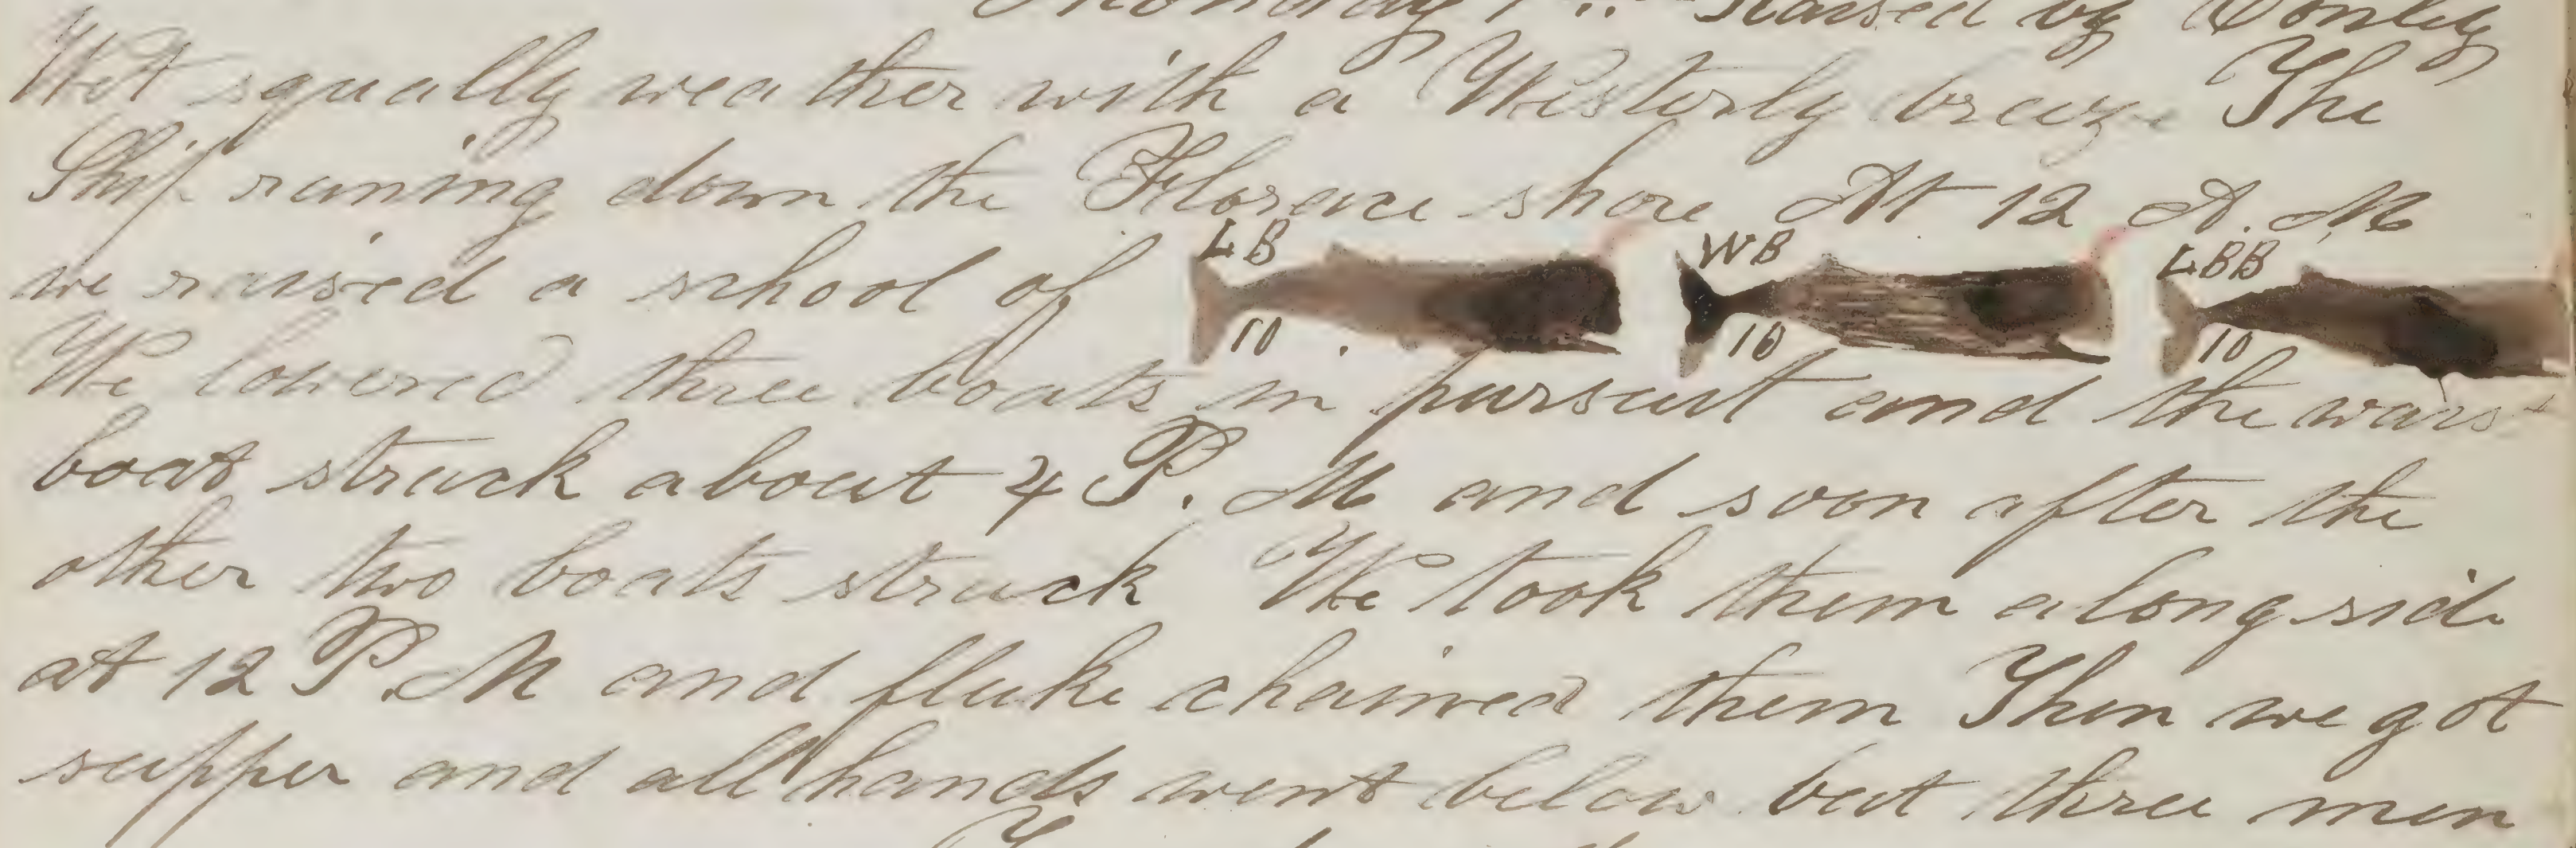 Monday 1st Raised by Conley
Wet squally weather with a Westerly breeze The
Ship runing down the Florence shore At 12 A. M
we raised a school of LB 10 WB 10 LBB 10
We lowered three boats in pursuit and the waist
boat struck about 4 P. M and soon after the
other two boats struck We took them along side
at 12 P. M and fluke chained them Then we got
supper and all hands went below but three men